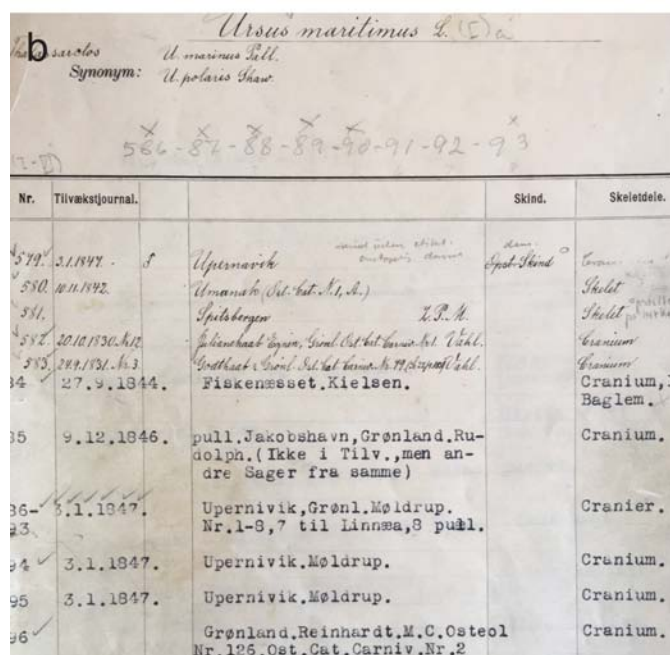 b
Ursus maritimus L. (I) a
Thalassarctos U. marinus Pall.
Synonym: U. polaris Shaw.
586-87-88-89-90-91-92-93
Nr. Tilvækstjournal. Skind. Skeletdele.
579. 3.1.1847. Upernavik Opst. Skind
580. 10.11.1842. Umanak (Ost. Cat. N. 1, A.) Skelet
581. Spitsbergen Z.M. Skelet
582. 20.10.1830. Nr. 12 Julianehaab Grønl. Ost. Cat. Carniv. Nr. 1. Vahl. Cranium
583. 24.9.1831. Nr. 3. Godthaab Grønl. Ost. Cat. Carniv. Nr. 19 Vahl. Cranium
84 27.9.1844. Fiskenæsset.Kielsen. Cranium,
Baglem.
85 9.12.1846. pull.Jakobshavn,Grønland.Ru- Cranium.
dolph.(Ikke i Tilv.,men an-
dre Sager fra samme)
86- 3.1.1847. Upernivik,Grønl.Møldrup. Cranier.
93. Nr.1-8,7 til Linnæa,8 pull.
94 3.1.1847. Upernivik.Møldrup. Cranium.
95 3.1.1847. Upernivik.Møldrup. Cranium.
96 Grønland.Reinhardt.M.C.Osteol Cranium.
Nr.126.Ost.Cat.Carniv.Nr.2